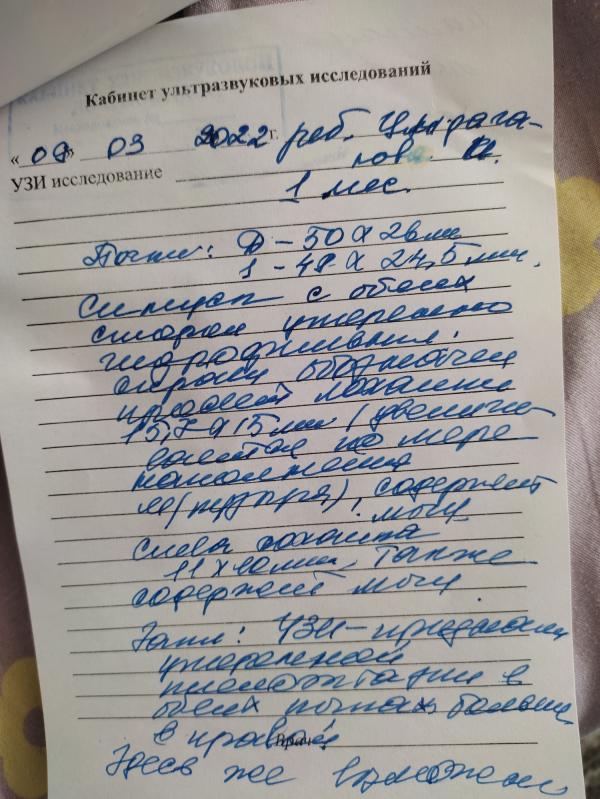 Кабинет ультразвуковых исследований
« 09 » 03 2022 г. реб.
УЗИ исследование
1 мес.
Почки: D – 50 х 26 мм
1 – 48 х 24,5 мм.
с обеих
сторон умеренно
справа
просвет лоханки
15,7 х 15 мм (увеличи-
вается по мере
наполнения
м/пузыря), содержит
мочу
слева лоханка
11 х 10 мм, также
содержит мочу
Закл: УЗИ – признаки
умеренной
пиелоэктазии в
обеих почках, больше
в правой
Врач
Здесь же